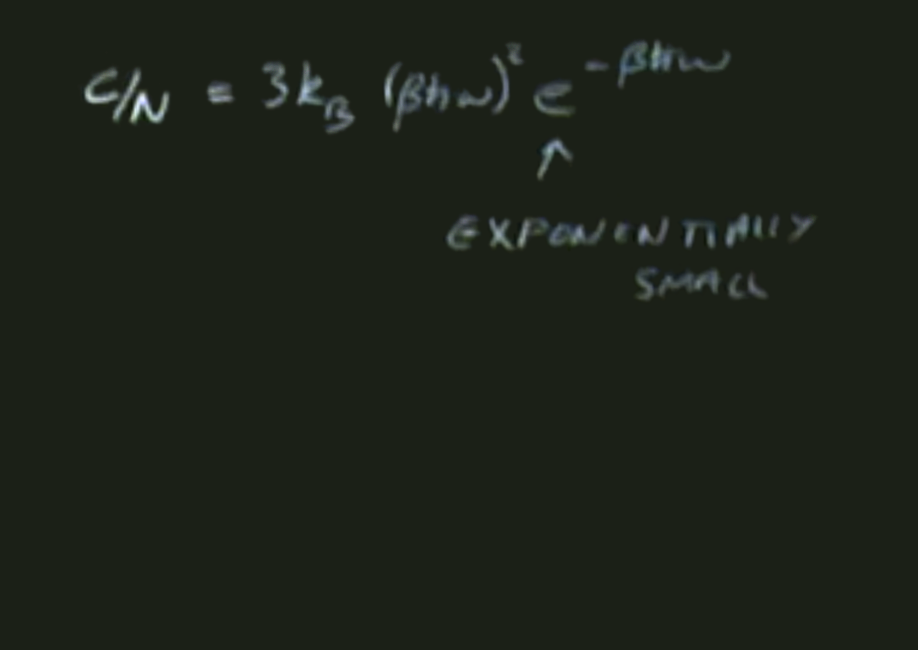 C/N = 3k_B (βħω)² e^{-βħω}
↑
EXPONENTIALLY
SMALL